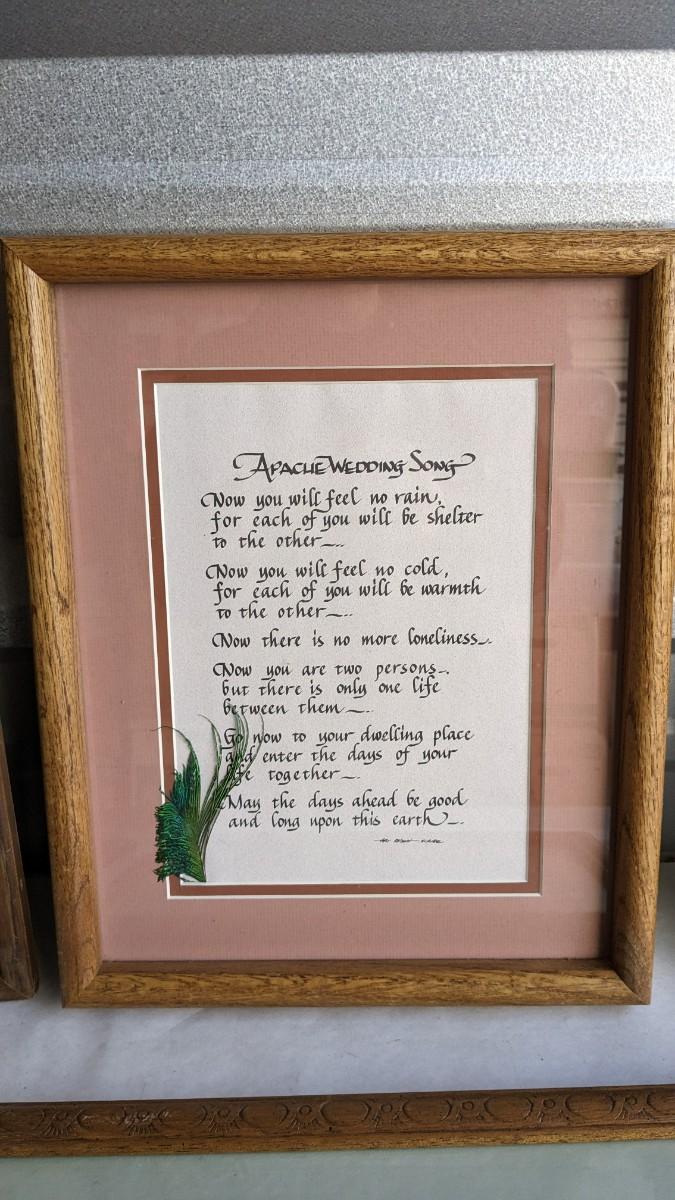 Apache Wedding Song
Now you will feel no rain,
for each of you will be shelter
to the other...
Now you will feel no cold,
for each of you will be warmth
to the other...
Now there is no more loneliness..
Now you are two persons..
but there is only one life
between them...
Go now to your dwelling place
and enter the days of your
life together...
May the days ahead be good
and long upon this earth...